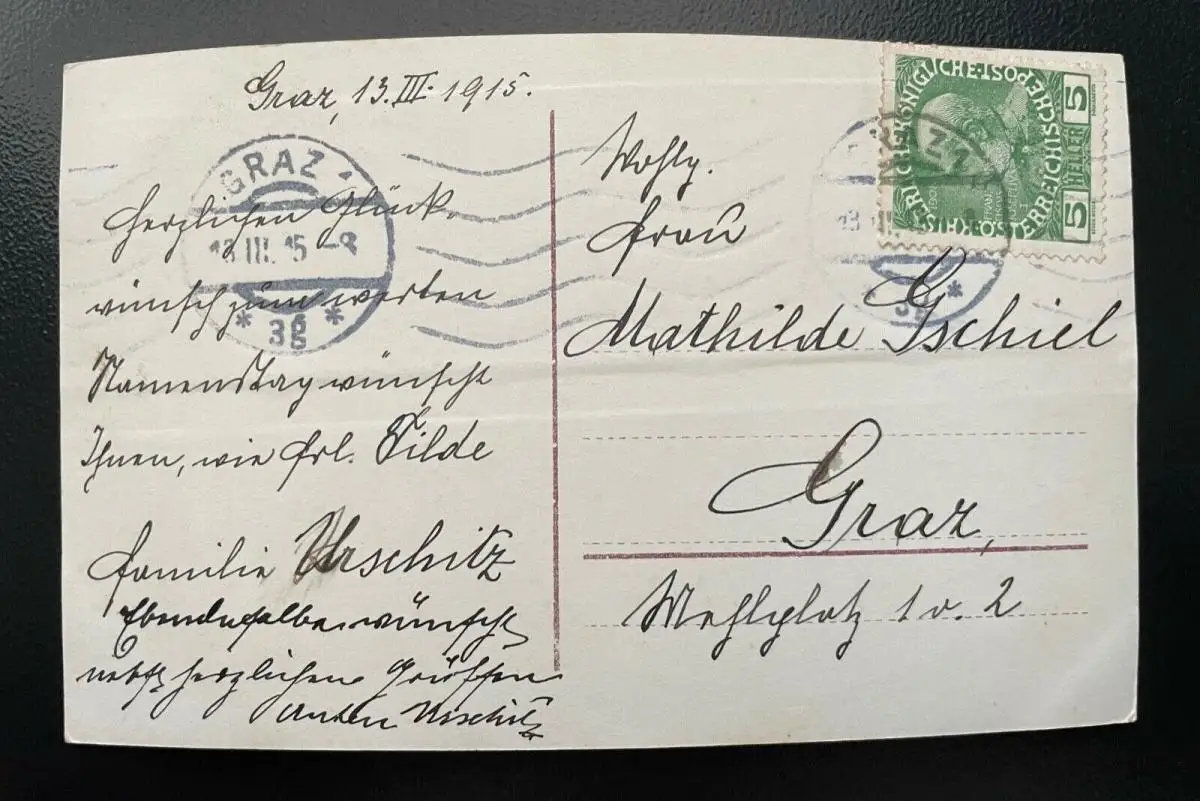 Graz, 13.III.1915.
GRAZ 1
13 III. 15 -8
* 3g *
Herzlichen Glück-
wünsch zum werten
Namenstag wünscht
Ihnen, wie Frl. Tilde
Familie Urschitz
Ebendasselbe wünscht
nebst herzlichen Grüssen
Anton Urschitz
Wohlg.
Frau
Mathilde Gschiel
Graz,
Mehlplatz 1 o. 2
KAISERLICHE KÖNIGLICHE POST
ÖSTERREICHISCHE
5 HELLER 5
Z 1
13
3g *